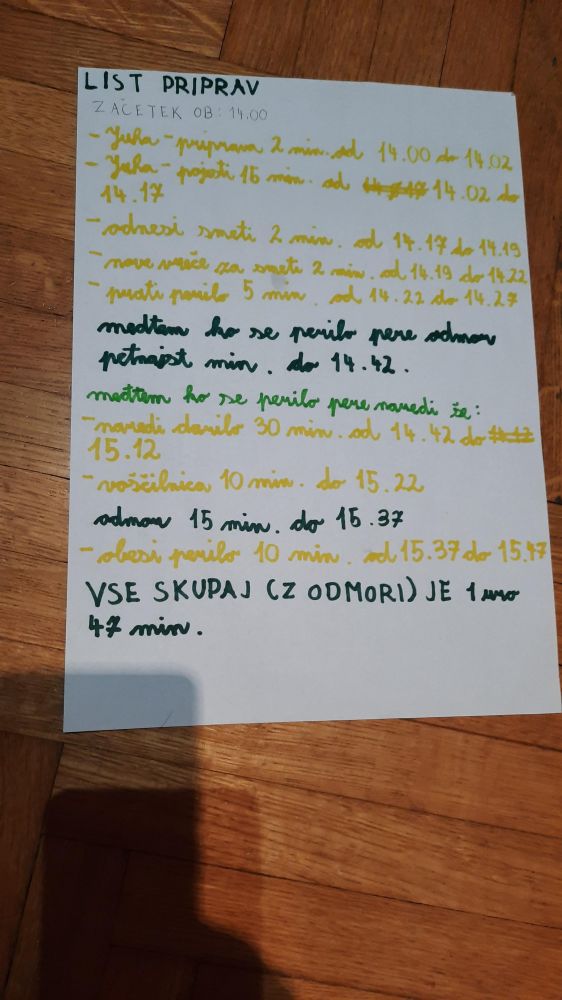 LIST PRIPRAV
ZAČETEK OB: 14.00
- Juha - priprava 2 min. od 14.00 do 14.02
- Juha - pojesti 15 min. od 14.02 do
14.17
- odnesi smeti 2 min. od 14.17 do 14.19
- nove vreče za smeti 2 min. od 14.19 do 14.22
- prati perilo 5 min. od 14.22 do 14.27
medtem ko se perilo pere odmor
petnajst min. do 14.42.
medtem ko se perilo pere naredi še:
- naredi darilo 30 min. od 14.42 do
15.12
- voščilnica 10 min. do 15.22
odmor 15 min. do 15.37
- obesi perilo 10 min. od 15.37 do 15.47
VSE SKUPAJ (Z ODMORI) JE 1 uro
47 min.